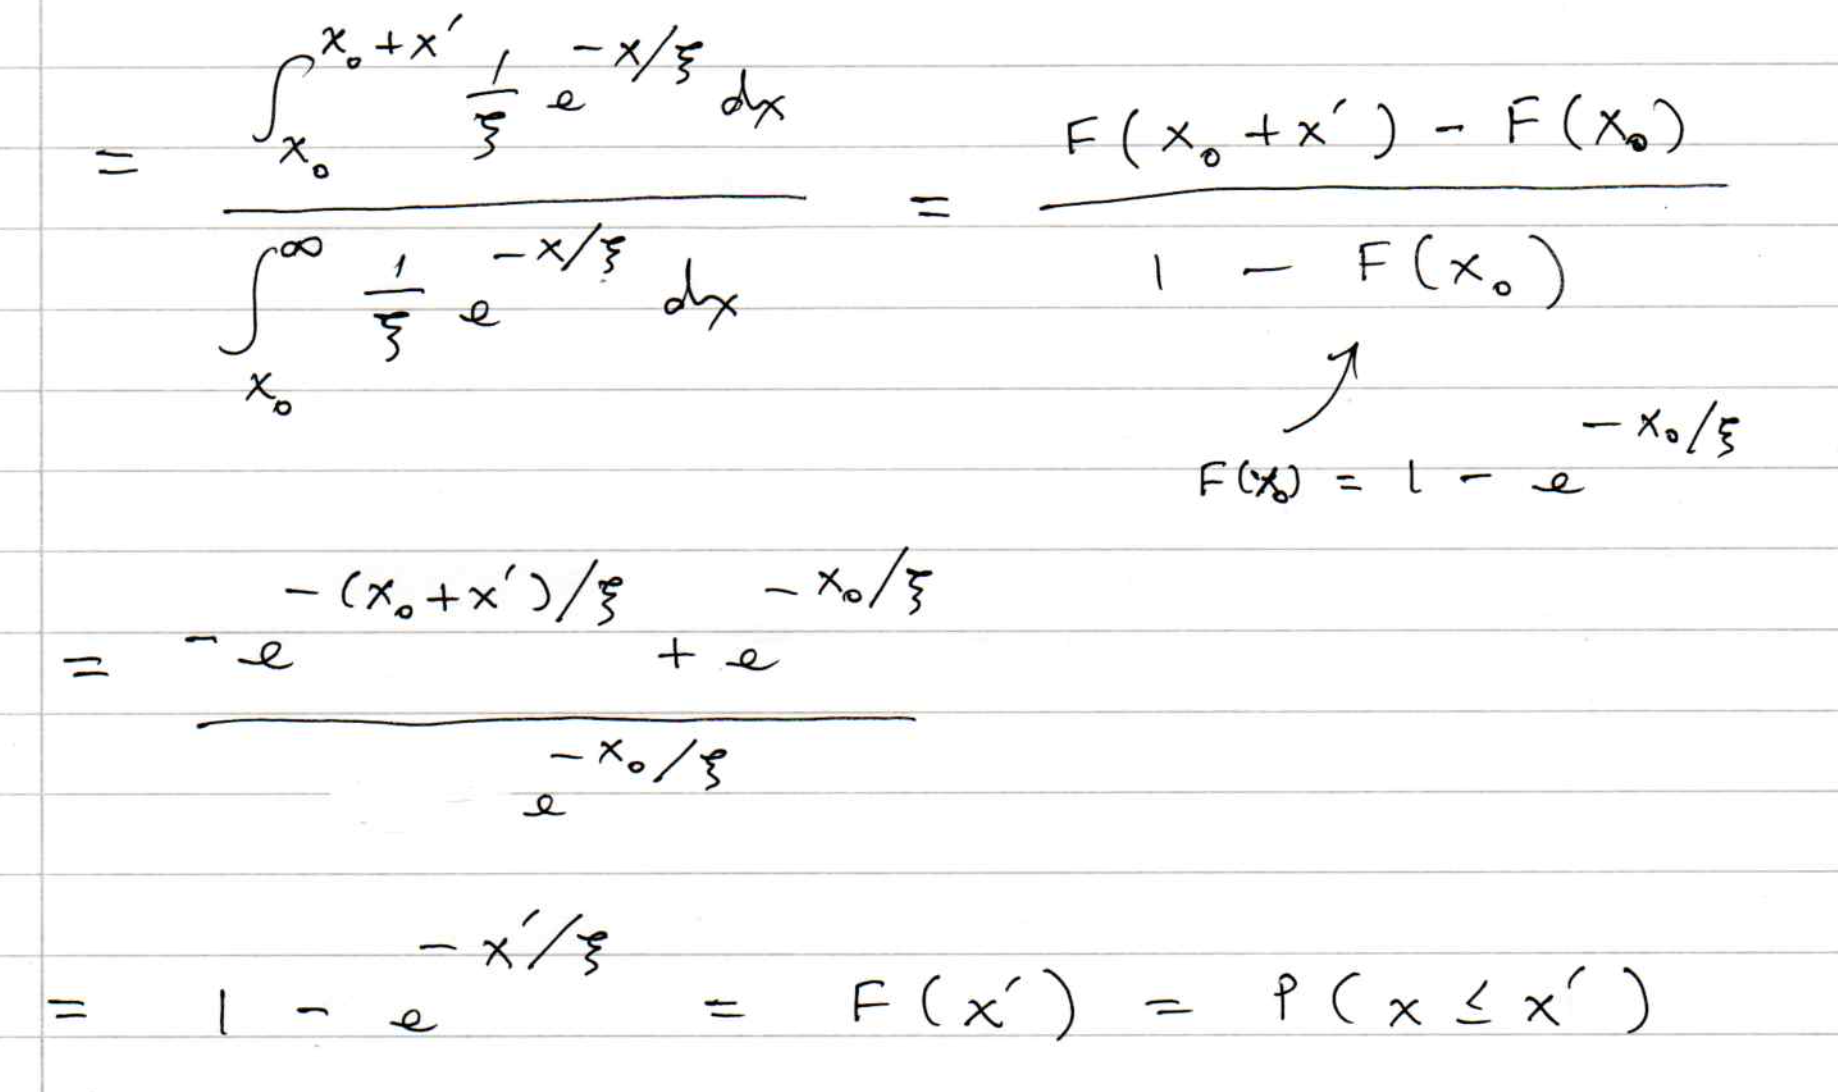 = \frac{\int_{x_0}^{x_0+x'} \frac{1}{ξ} e^{-x/ξ} dx}{\int_{x_0}^{∞} \frac{1}{ξ} e^{-x/ξ} dx} = \frac{F(x_0+x') - F(x_0)}{1 - F(x_0)}
F(x_0) = 1 - e^{-x_0/ξ}
= \frac{-e^{-(x_0+x')/ξ} + e^{-x_0/ξ}}{e^{-x_0/ξ}}
= 1 - e^{-x'/ξ} = F(x') = P(x ≤ x')